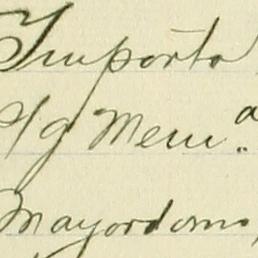 Importo
Sg Mem.ª
Mayordomo,